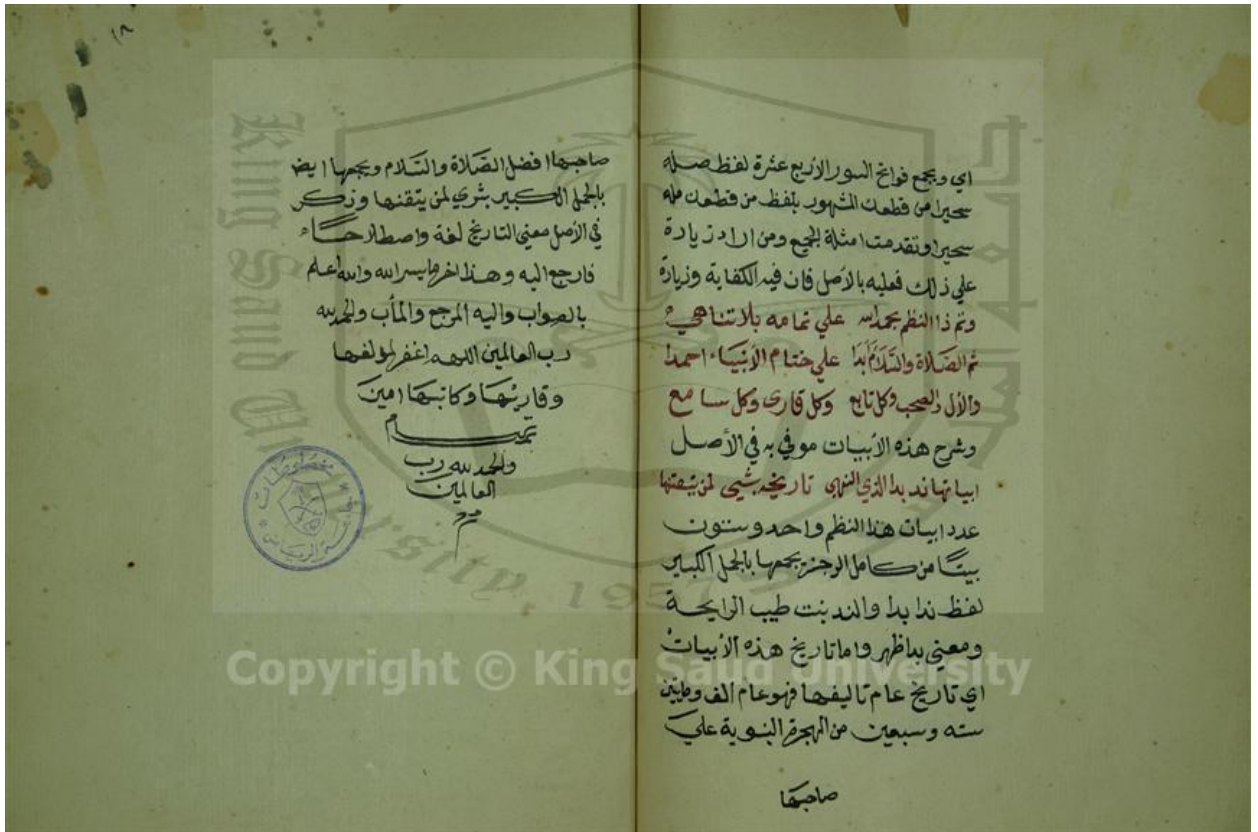 اي ويجمع فواتح السور الأربع عشرة لفظ صله
سحيرا من قطعك المشهور بلفظ من قطعك صله
سحيرا وتقدمت امثلة الجميع ومن اراد زيارة
علي ذلك فعليه بالأصل فان فيه الكفاية وزيارة
وتم ذا النظم بحمد الله علي تمامه بلا تناهي
ثم الصلاة والسلام أبدا علي ختام الأنبياء احمدا
والأل والصحب وكل تابع وكل قارى وكل سامع
وشرح هذه الأبيات موفي به في الأصل
ابياتها ند بدا لذي النهى تاريخه بشرى لمن يتقنها
عدد ابيات هذا النظم واحد وستون
بيتًا من كامل الرجز يجمعها بالجمل الكبير
لفظ ند بدا والند نبت طيب الرايحة
ومعني بدا ظهر واما تاريخ هذه الأبيات
اي تاريخ عام تاليفها فهو عام الف ومايتين
سته وسبعين من الهجرة النبوية علي
صاحبها
١٨
صاحبها افضل الصلاة والسلام ويجمعها ايض
بالجمل الكبير بشري لمن يتقنها وذكر
في الأصل معني التاريخ لغة واصطلاحًا
فارجع اليه وهذا اخر ما يسر الله والله اعلم
بالصواب واليه المرجع والمأب والحمد لله
رب العالمين اللهم اغفر لمؤلفها
وقاريها وكاتبها امين
تم
والحمد لله رب
العالمين
King Saud University, 1957
Copyright © King Saud University